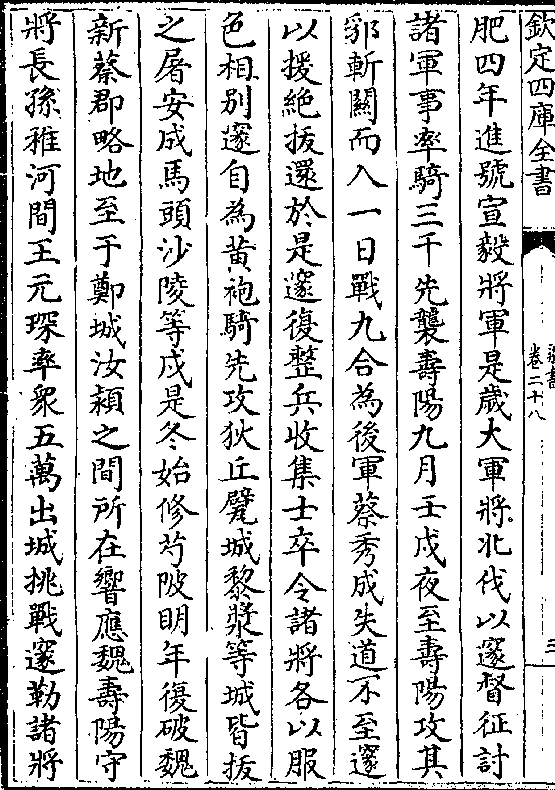 欽定四庫全書
卷二十八
三
肥四年進號宣毅將軍是歲大軍將北伐以邃督征討
諸軍事率騎三千先襲壽陽九月壬戌夜至壽陽攻其
郛斬關而入一日戰九合為後軍蔡秀成失道不至邃
以援絶拔還於是邃復整兵收集士卒令諸將各以服
色相别邃自為黄袍騎先攻狄丘甓城黎漿等城皆拔
之屠安成馬頭沙陵等戍是冬始修芍陂明年復破魏
新蔡郡略地至于鄭城汝潁之間所在響應魏壽陽守
將長孫稚河間王元琛率衆五萬出城挑戰邃勒諸將